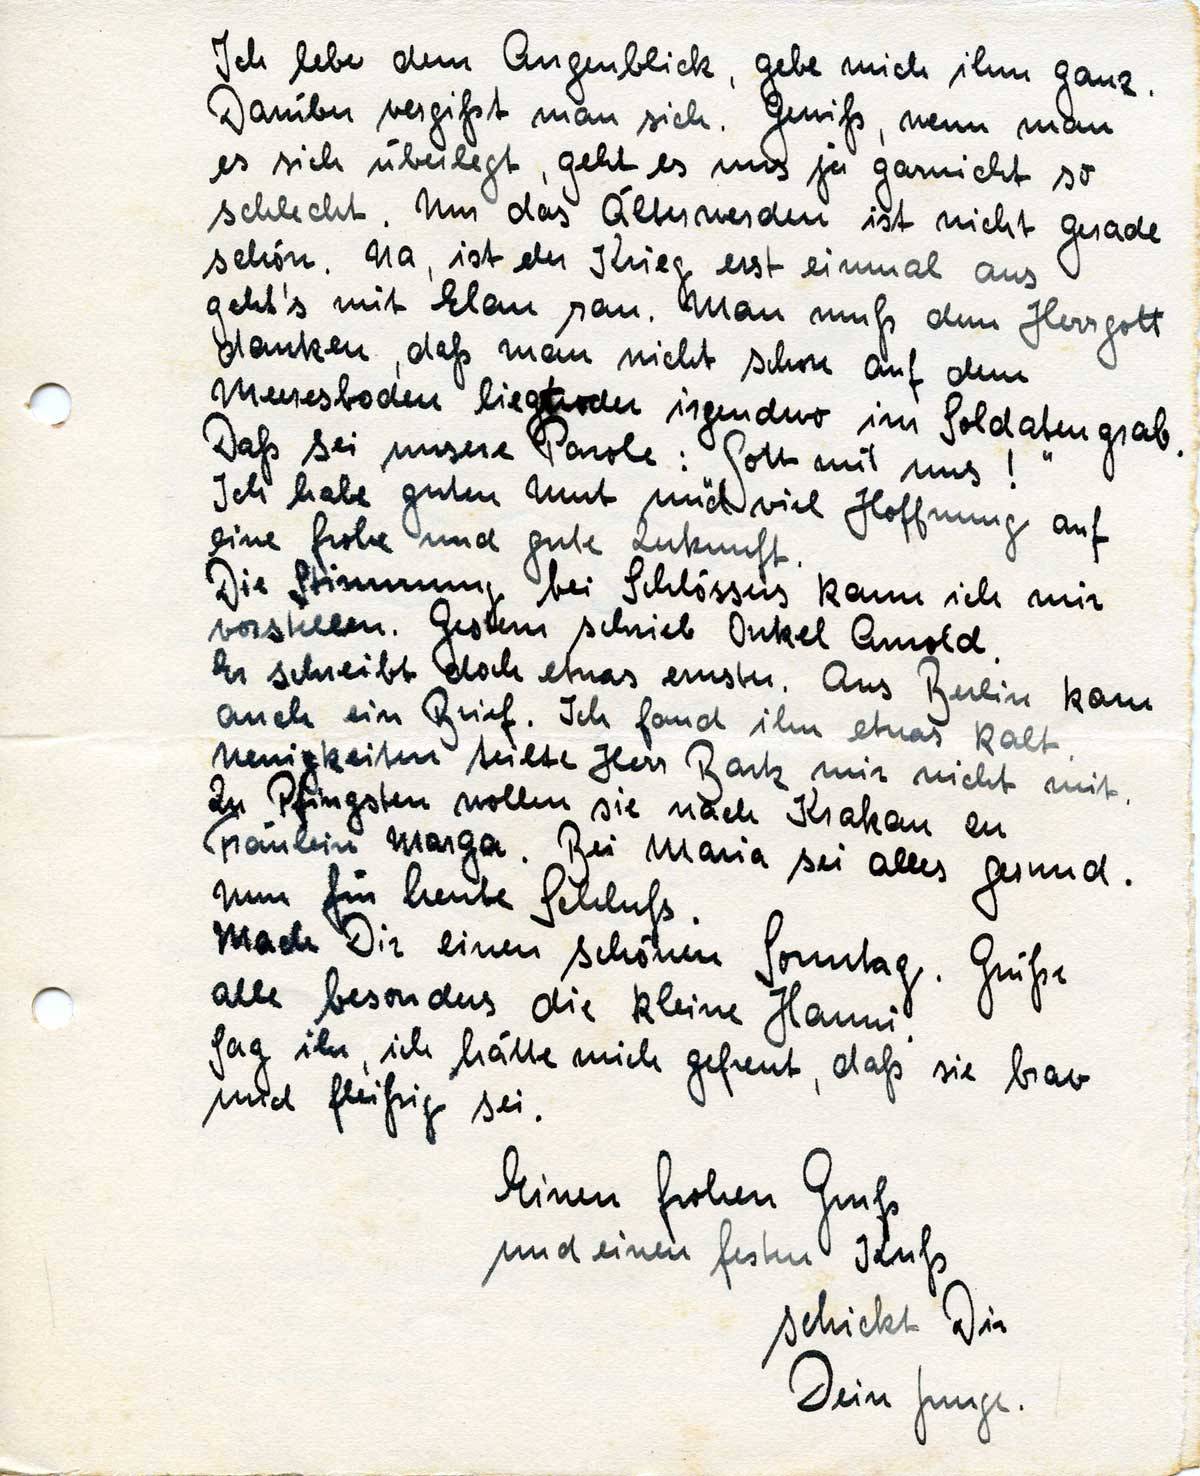 Ich lebe dem Augenblick, gebe mich ihm ganz.
Darüber vergißt man sich. Gewiß, wenn man
es sich überlegt, geht es uns ja garnicht so
schlecht. Nur das Älterwerden ist nicht gerade
schön. Na, ist der Krieg erst einmal aus
geht's mit Elan ran. Man muß dem Herrgott
danken, daß man nicht schon auf dem
Meeresboden liegt oder irgendwo im Soldatengrab.
Daß sei unsere Parole: Gott mit uns!"
Ich habe guten Mut und viel Hoffnung auf
eine frohe und gute Zukunft.
Die Stimmung bei Schlössers kann ich mir
vorstellen. Gestern schrieb Onkel Arnold.
Er schreibt doch etwas ernster. Aus Berlin kam
auch ein Brief. Ich fand ihn etwas kalt.
Neuigkeiten teilte Herr Bark mir nicht mit.
Zu Pfingsten wollen sie nach Krakau zu
Fräulein Marga. Bei Maria sei alles gesund.
Nun für heute Schluß.
Mach Dir einen schönen Sonntag. Grüße
alle besonders die kleine Hanni.
Sag ihr, ich hätte mich gefreut, daß sie brav
und fleißig sei.
Einen frohen Gruß
und einen festen Kuß
schickt Dir
Dein Junge.